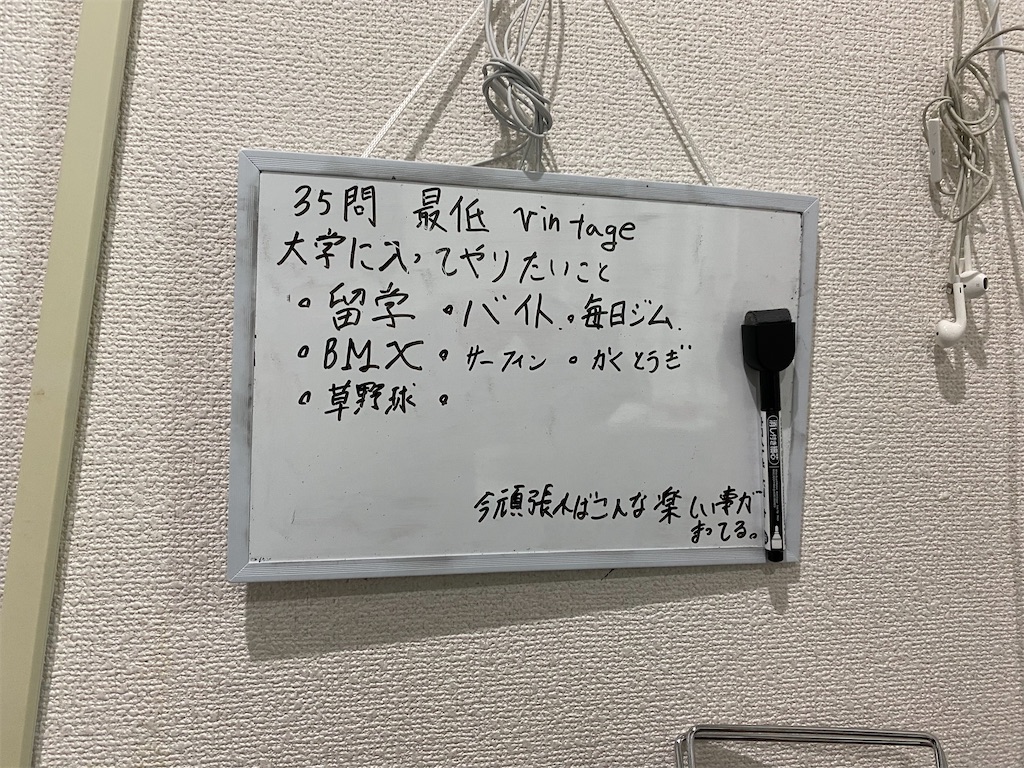 35問 最低 vintage
大学に入ってやりたいこと
・留学 ・バイト ・毎日ジム
・BMX ・サーフィン ・かくとうぎ
・草野球 ・
今頑張ればこんな楽しい事が
まってる。